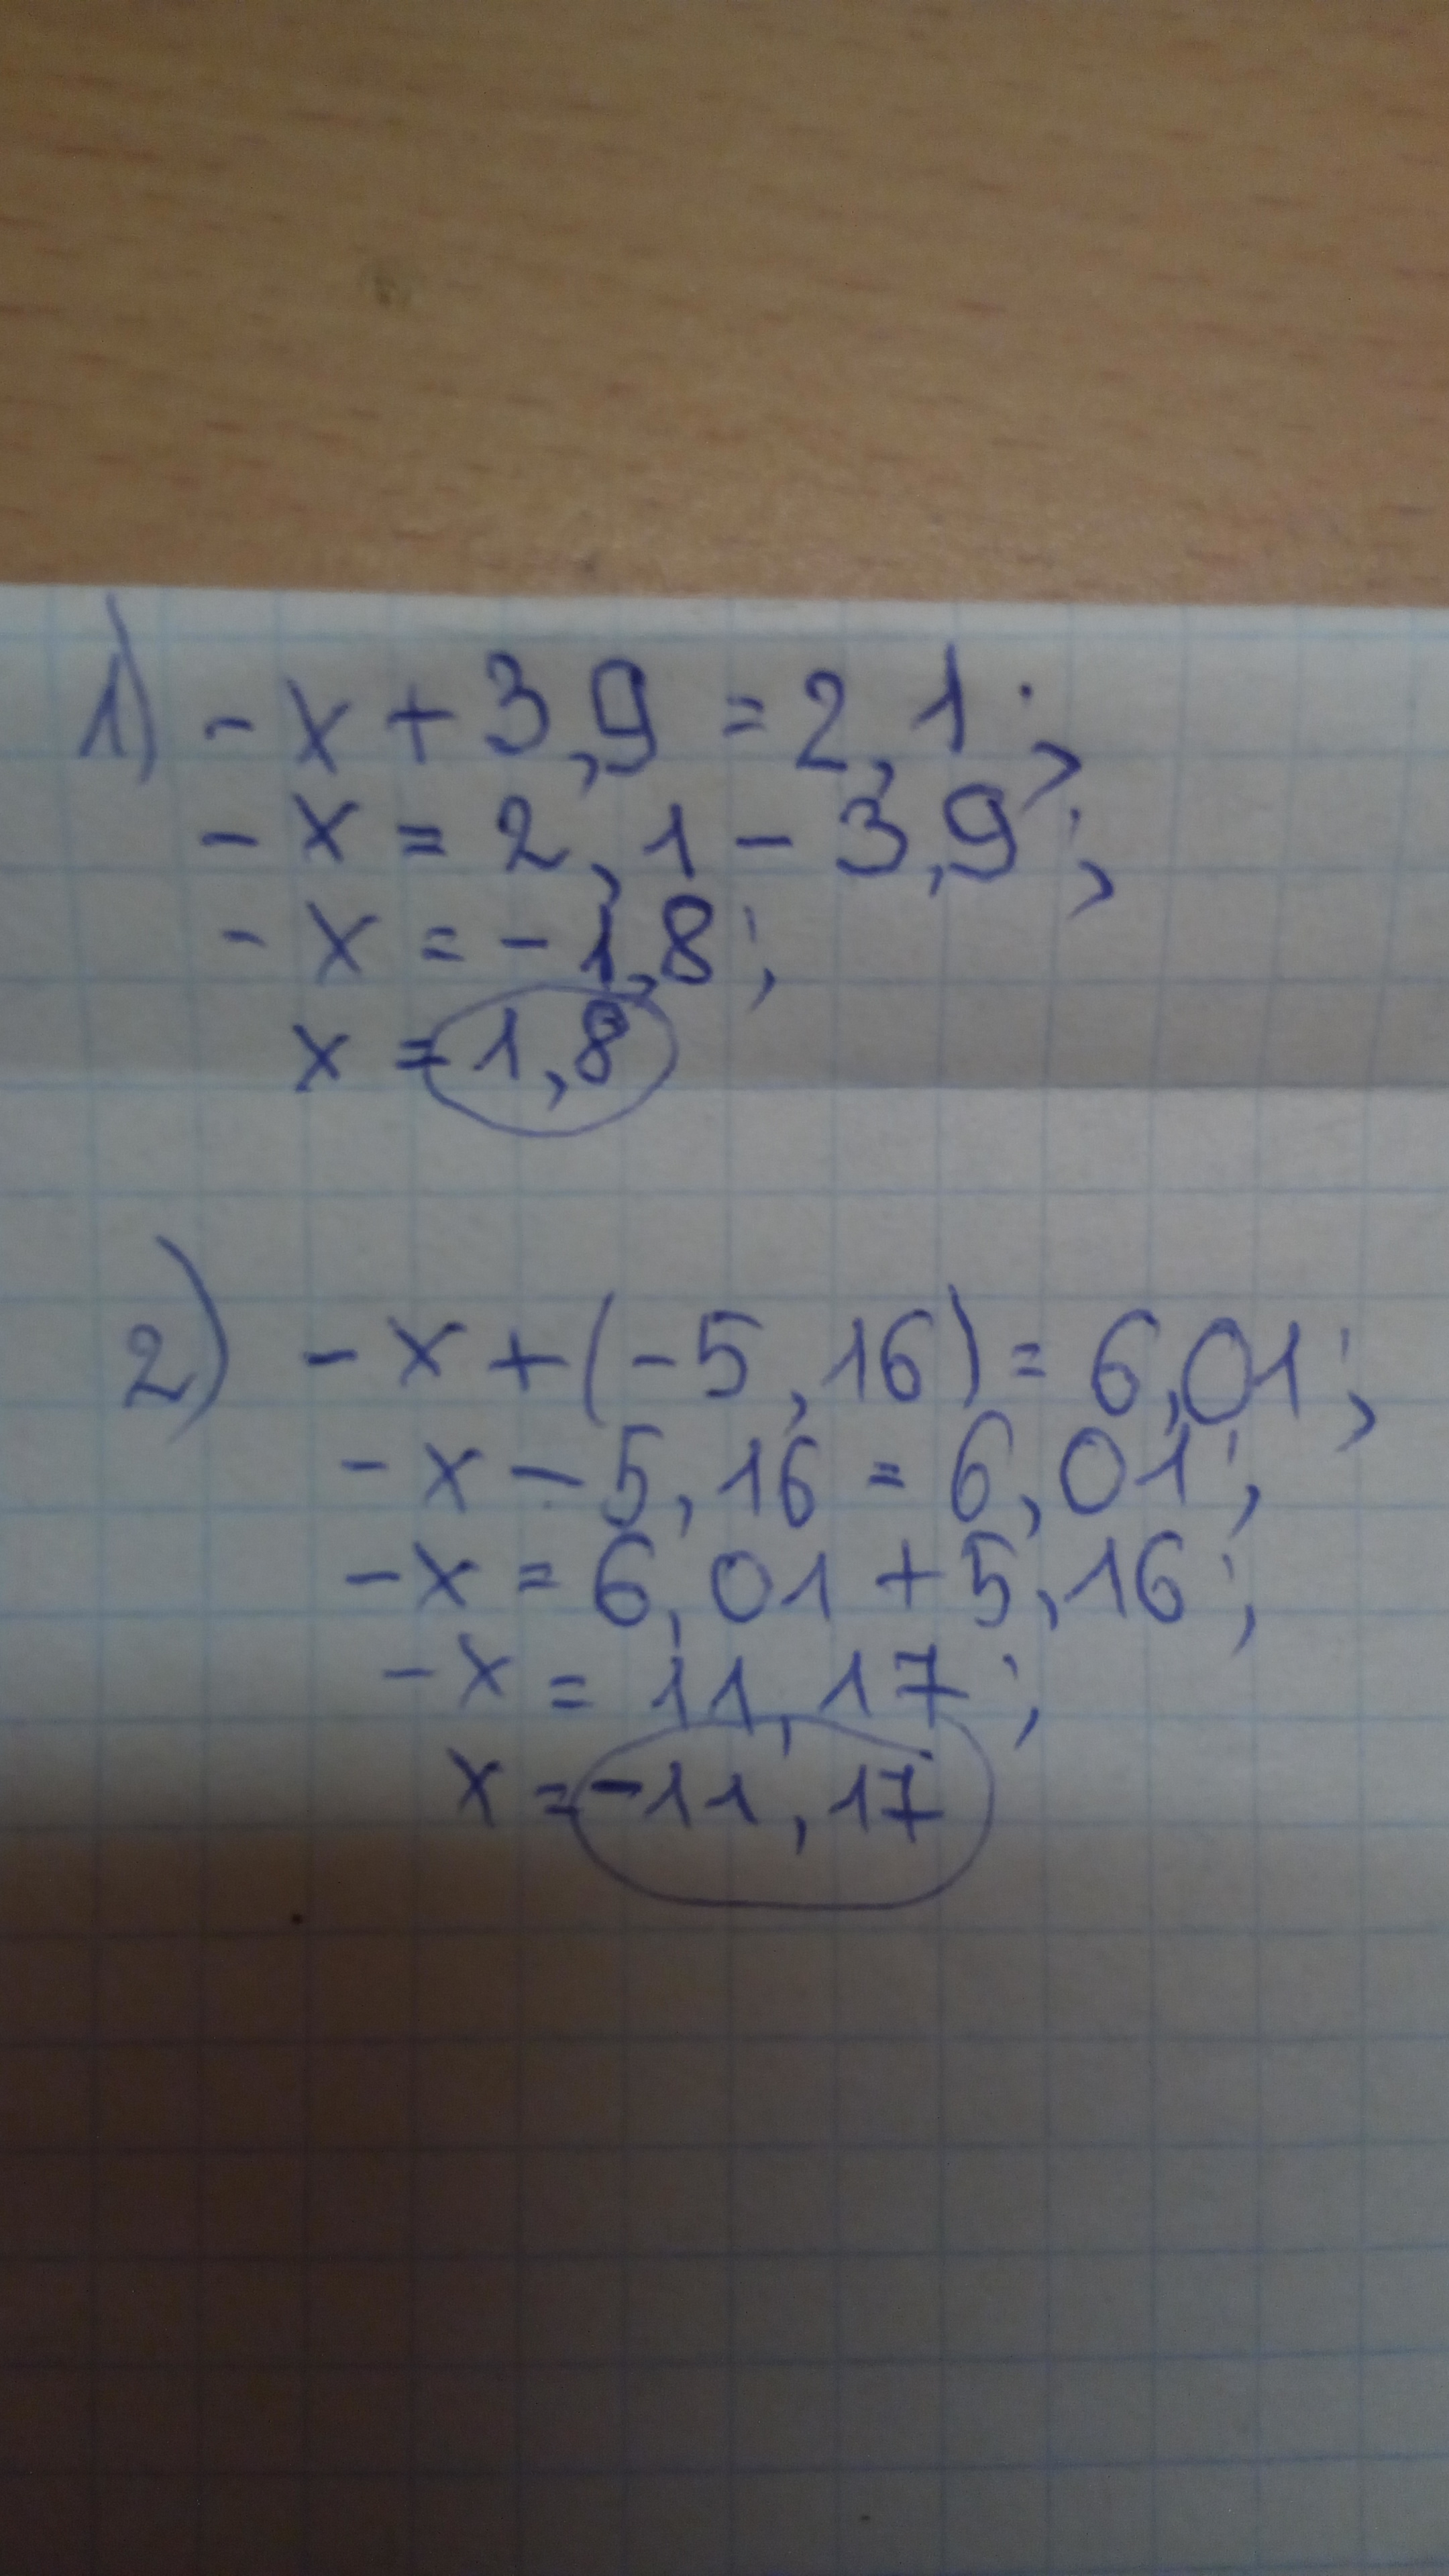 1) -x+3,9=2,1;
-x=2,1-3,9;
-x=-1,8;
x=1,8
2) -x+(-5,16)=6,01;
-x-5,16=6,01;
-x=6,01+5,16;
-x=11,17;
x=-11,17